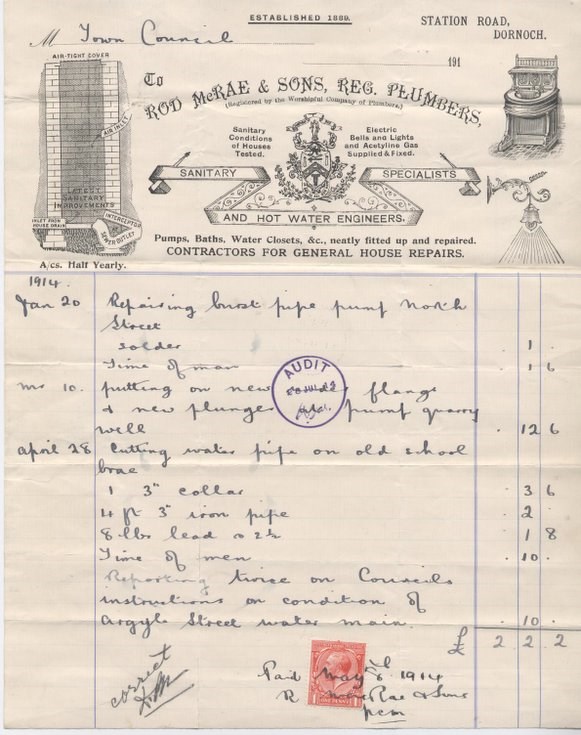 ESTABLISHED 1889.
STATION ROAD,
DORNOCH.
M Town Council
191
AIR-TIGHT COVER
AIR INLET
LATEST
SANITARY
IMPROVEMENTS
INLET FROM
HOUSE DRAIN
INTERCEPTOR
SEWER OUTLET
To
ROD McRAE & SONS, REG. PLUMBERS,
(Registered by the Worshipful Company of Plumbers.)
Sanitary
Conditions
of Houses
Tested.
Electric
Bells and Lights
and Acetyline Gas
Supplied & Fixed.
SANITARY SPECIALISTS
AND HOT WATER ENGINEERS.
Pumps, Baths, Water Closets, &c., neatly fitted up and repaired.
CONTRACTORS FOR GENERAL HOUSE REPAIRS.
A/cs. Half Yearly.
1914.
Jan 20 Repairing burst pipe pump North
Street
solder . 1 .
Time of man . 1 6
10. putting on new flange
& new plunger pump quarry
well . 12 6
AUDIT
April 28 Cutting water pipe on old school
brae
1 3" collar . 3 6
4 ft 3" iron pipe . 2 .
8 lbs lead @ 2½ . 1 8
Time of men . 10 .
Reporting twice on Councils
instructions on condition of
Argyle Street water main. . 10 .
£ 2 2 2
correct
Paid May 1914
R McRae & Sons